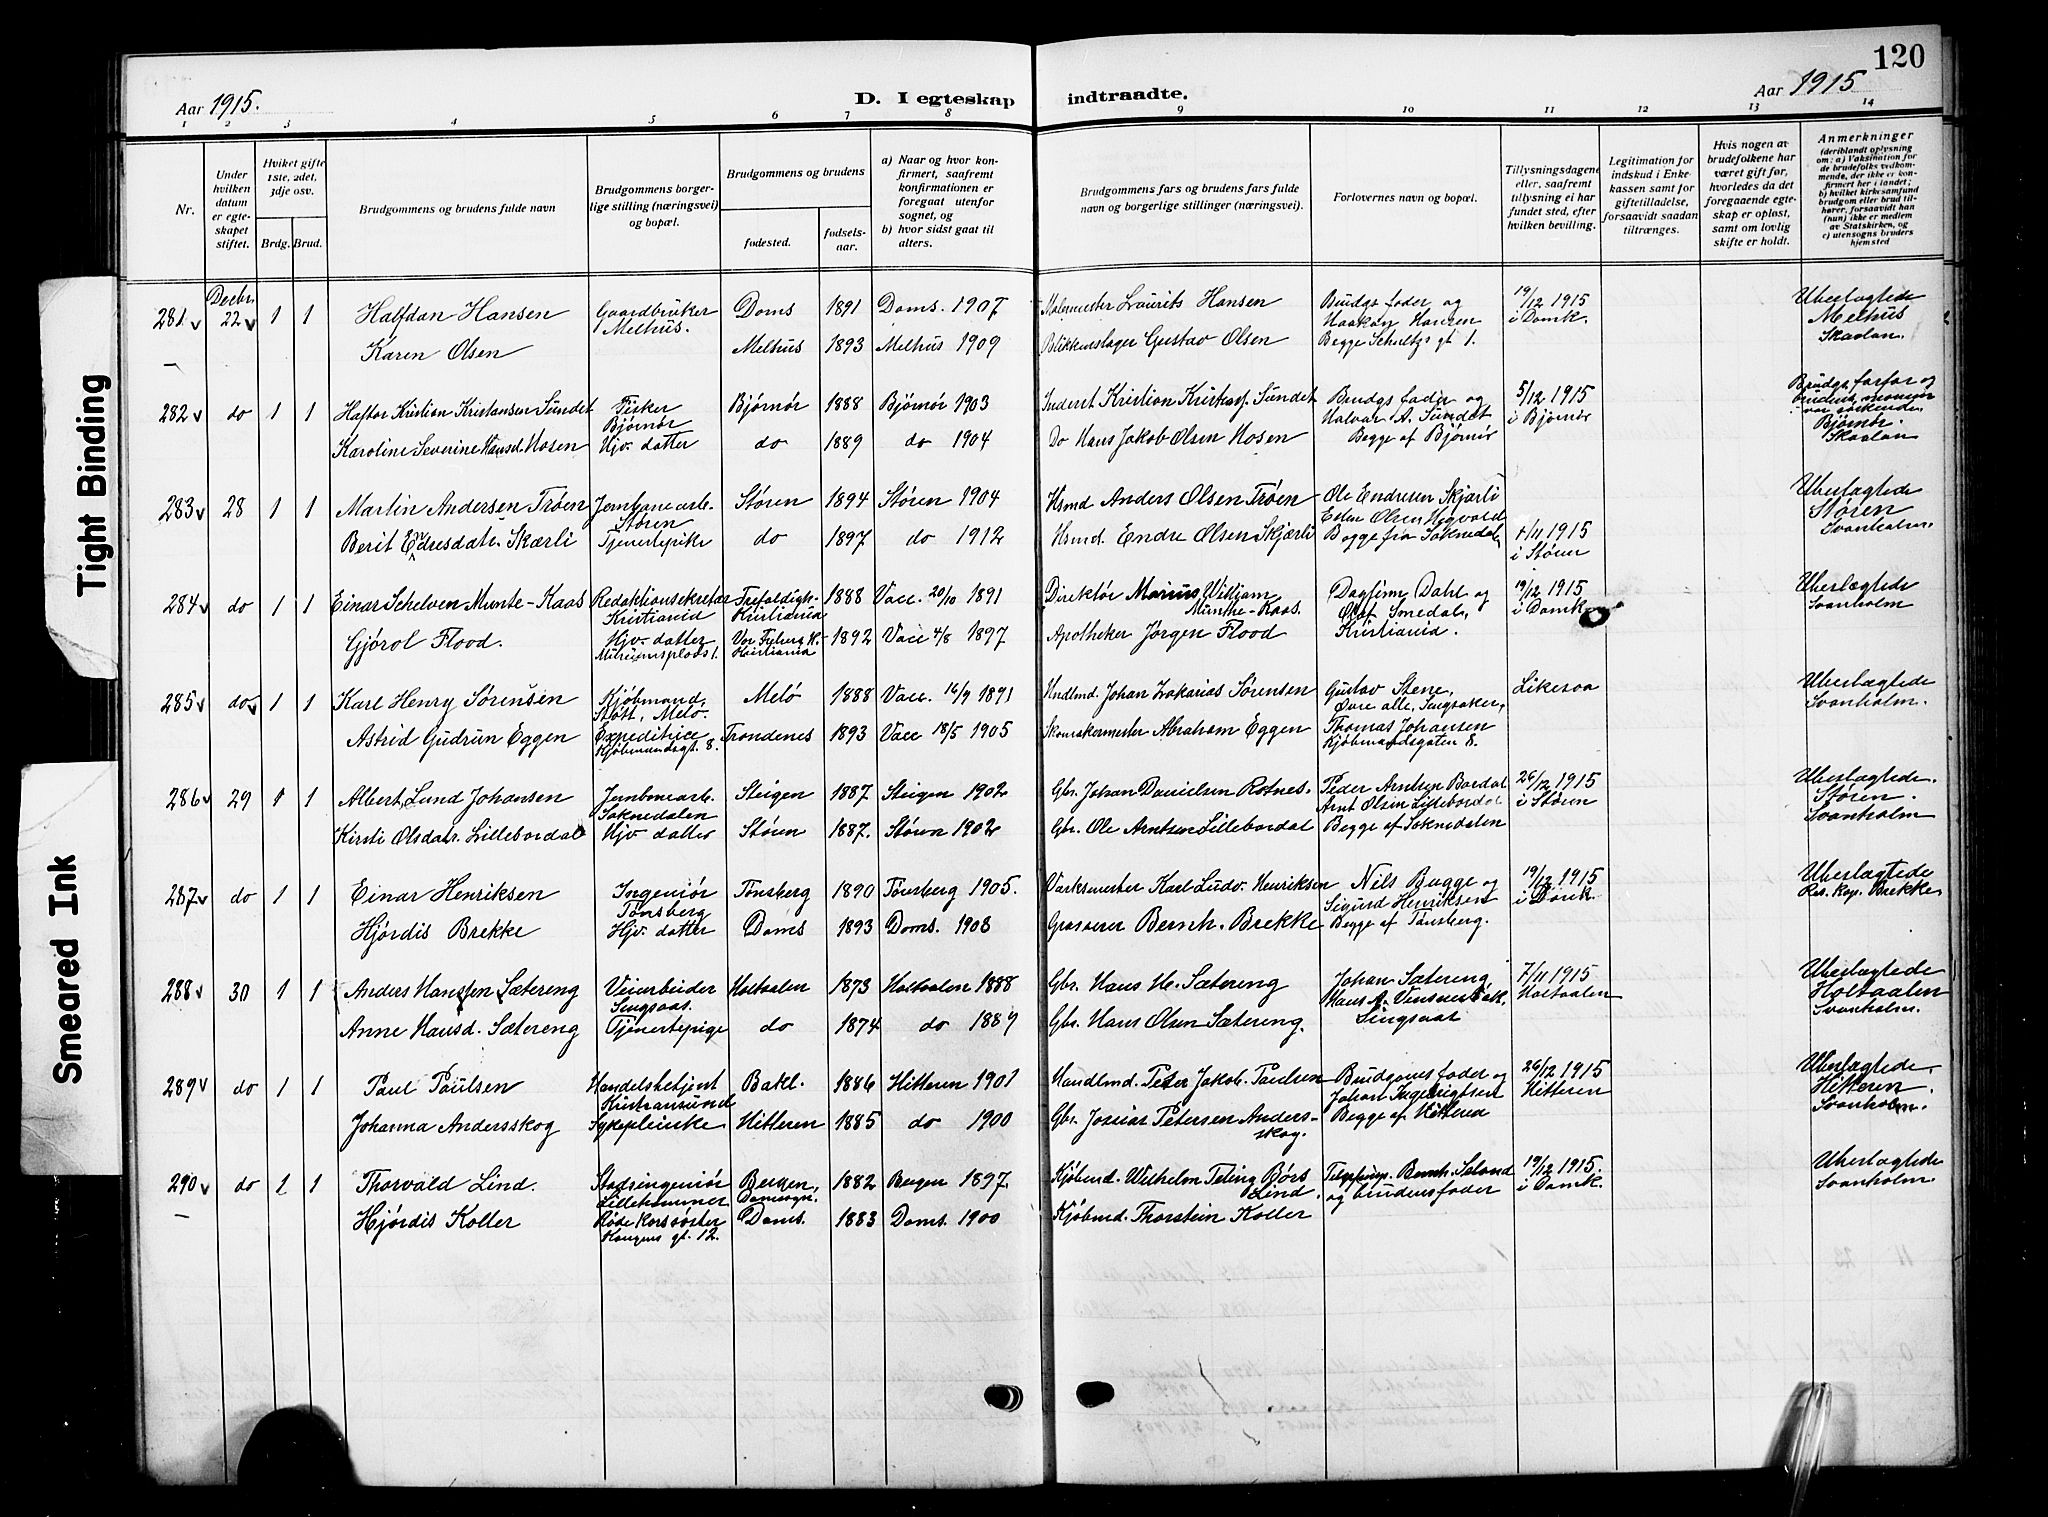 120
Aar 1915.
D. I egteskap indtraadte.
Aar 1915
1 2 3 4 5 6 7 8 9 10 11 12 13 14
Nr.
Under hvilken datum er egteskapet stiftet.
Hviket gifte 1ste, 2det, 3dje osv.
Brdg. Brud.
Brudgommens og brudens fulde navn
Brudgommens borgerlige stilling (næringsvei) og bopæl.
Brudgommens og brudens
fødested.
fødselsaar.
a) Naar og hvor konfirmert, saafremt konfirmationen er foregaat utenfor sognet, og
b) hvor sidst gaat til alters.
Brudgommens fars og brudens fars fulde navn og borgerlige stillinger (næringsvei).
Forlovernes navn og bopæl.
Tillysningsdagene eller, saafremt tillysning ei har fundet sted, efter hvilken bevilling.
Legitimation for indskud i Enkekassen samt for giftetilladelse, forsaavidt saadan tiltrænges.
Hvis nogen av brudefolkene har været gift før, hvorledes da det foregaaende egteskap er opløst, samt om lovlig skifte er holdt.
Anmerkninger (deriblandt oplysning om: a) Vaksination for de brudefolks vedkommende, der ikke er konfirmert her i landet; b) hvilket kirkesamfund brudgom eller brud tilhører, forsaavidt han (hun) ikke er medlem av Statskirken, og c) utensogns bruders hjemsted
Decbr.
281 22 1 1 Halfdan Hansen Gaardbruker Doms 1891 Doms. 1907 Malermester Laurits Hansen Brudgs fader og 19/12 1915 Uberlagtede
Melhus. Haakon Hansen i Domk. Melhus
Karen Olsen Melhus 1893 Melhus 1909 Blikkenslager Gustav Olsen Begge Schultzgs gt 1. Skaslan.
282 do 1 1 Haftor Kristian Kristansen Sundet Fisker Bjørnør 1888 Bjørnør 1903 Inderst Kristian Sundet Brudgs fader og 5/12 1915 Brudgs farfar og
Bjørnør Halvar A. Sundet i Bjørnør
Karoline Severine Hansd. Mosen Hjv. datter do 1889 do 1904 Do Hans Jakob Olsen Mosen Begge af Bjørnør Bjørnør.
Skaslan
283 28 1 1 Martin Andersen Trøen Jernbanearb. Støren 1894 Støren 1904 Hsmd Anders Olsen Trøen Ole Endresen Skjærli Uberlagtede
Støren Støren
Berit Endresdatr. Skærli Tjenestepike do 1897 do 1912 Hsmd. Endre Olsen Skjærli Begge fra Soknedalen 1915 Svanholm.
i Støren
284 do 1 1 Einar Schelven Munte-Kaas Redaktionsekretær Trefoldigh. 1888 Vacc. 20/10 1891 Direktør Marius Wilhjam Dagfinn Dahl og 19/12 1915 Uberlægtede
Kristiania Kristiania Munthe-Kaas. Olaf Smedals, i Domk Svanholm
Gjørol Flood. Hjv. datter 1892 Vacc 4/8 1897 Apotheker Jørgen Flood Kristiania.
Museumsplads 1. Kristiania
285 do 1 1 Karl Henry Sørensen Kjøbmand, Melö 1888 Vacc. 1891 Hndlmd. Johan Zakarias Sørensen Gustav Stene, Likesaa Uberlægtede
Støtt, Melö. Øvre alle, Singsaker, Svanholm.
Astrid Gudrun Eggen Expeditrice Trondenes 1893 Vacc 18/5 1905 Skomakermester Abraham Eggen Thomas Johansen
Kjøbmandsgt. 8. Kjøbmandsgaten 8.
286 29 1 1 Albert Lund Johansen Jernbanearb. Steigen 1887 Steigen 1902 Gbr. Johan Danielsen Rotnes. Peder Arntsen Bardal 26/12 1915 Uberlagtede.
Soknedalen Arnt Olsen Lillebordal i Støren Støren.
Kirsti Olsdatr. Lillebordal Hjv datter Støren 1887. Støren 1902 Gbr. Ole Arntsen Lillebordal Begge af Soknedalen Svanholm
287 do 1 1 Einar Henriksen Ingeniør Tønsberg 1890 Tønsberg 1905. Værksmester Karl Ludv. Henriksen Nils Bugge og 19/12 1915 Uberlagtede
Tønsberg Sigurd Henriksen i Domk. Res. Kap. Brekke
Hjørdis Brekke Hjv. datter Doms 1893 Doms. 1908 Grosserer Bernh. Brekke Begge af Tønsberg.
288 30 1 1 Anders Hanssen Sætereng Veiarbeider Holtaalen 1873 Holtaalen 1888 Gbr. Hans H. Sætereng Johan Sætereng 7/11 1915 Uberlagtede
Singsaas. Holtaalen Holtaalen
Anne Hansd. Sætereng Tjenestepige do 1874 do 1889 Gbr. Hans Olsen Sætereng. Singsaas Svanholm.
289 do 1 1 Paul Paulsen Handelsbetjent Bakl. 1886 Hitteren 1901 Handlmd. Peter Jakob. Paulsen Brudgoms fader og 26/12 1915 Uberlagtede
Kristiansund Johan Ingebrigtsen Hitteren Hitteren.
Johanna Andersskog Sykepleirske Hitteren 1885 do 1900 Gbr. Josias Petersen Anders- Begge af Hitteren Svanholm.
skog.
290 do 1 1 Thorvald Lind. Stadsingeniør Bergen, 1882 Bergen 1897. Kjøbmd. Wilhelm Teling Børs Bernh. Seland 19/12 1915. Uberlagtede
Lillehammer Lind. og brudens fader i Domk. Svanholm.
Hjørdis Koller Røde Kors søster Doms. 1883 Doms. 1900 Kjøbmd. Thorstein Koller
Kongens gt. 12.
Tight Binding
Smeared Ink